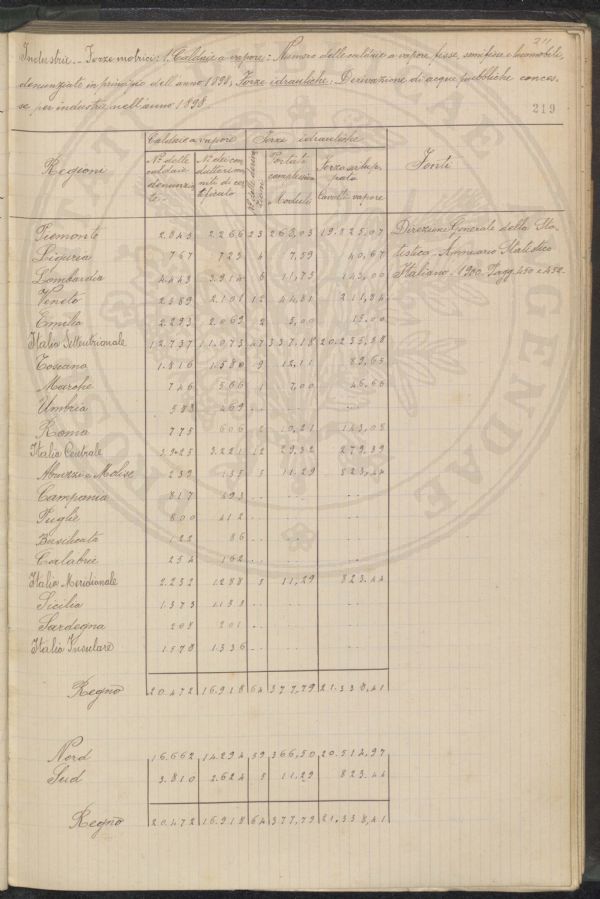 Industrie. - Forze motrici: 1. Caldaie a vapore: Numero delle caldaie a vapore fisse, semifisse e locomobili,
denunziate in principio dell'anno 1898; Forze idrauliche: Derivazione di acque pubbliche conces-
se per industrie nell'anno 1898.
219
Caldaie a vapore Forze idrauliche
Regioni N.º delle caldaie denunzia- te N.º dei con- duttori mu- niti di cer- tificato Portate complessive Moduli Forza svilup- pata Cavalli vapore Fonti
Piemonte 2.843 2.266 23 263,03 19.825,07 Direzione Generale della Sta-
Liguria 767 723 4 7,59 40,67 tistica. Annuario Statistico
Lombardia 4.443 3.914 6 11,75 143,00 Italiano. 1900. Pagg. 450 e 452.
Veneto 2.389 2.101 12 44,81 211,84
Emilia 2.293 2.069 2 5,00 15,00
Italia Settentrionale 12.737 11.073 47 337,18 20.235,58
Toscana 1.816 1.580 9 12,11 89,65
Marche 746 566 1 7,00 46,66
Umbria 583 469 .. ... ..
Roma 775 606 2 10,21 143,08
Italia Centrale 3.925 3.221 12 29,32 279,39
Abruzzi e Molise 239 135 5 11,29 823,44
Campania 817 493 .. ... ..
Puglie 800 412 .. ... ..
Basilicata 122 86 .. ... ..
Calabrie 254 162 .. ... ..
Italia Meridionale 2.232 1288 5 11,29 823,44
Sicilia 1.373 1.135 .. ... ..
Sardegna 205 201 .. ... ..
Italia Insulare 1.578 1.336 .. ... ..
Regno 20.472 16.918 64 377,79 21.338,41
Nord 16.662 14.294 59 366,50 20.514,97
Sud 3.810 2.624 5 11,29 823,44
Regno 20.472 16.918 64 377,79 21.338,41